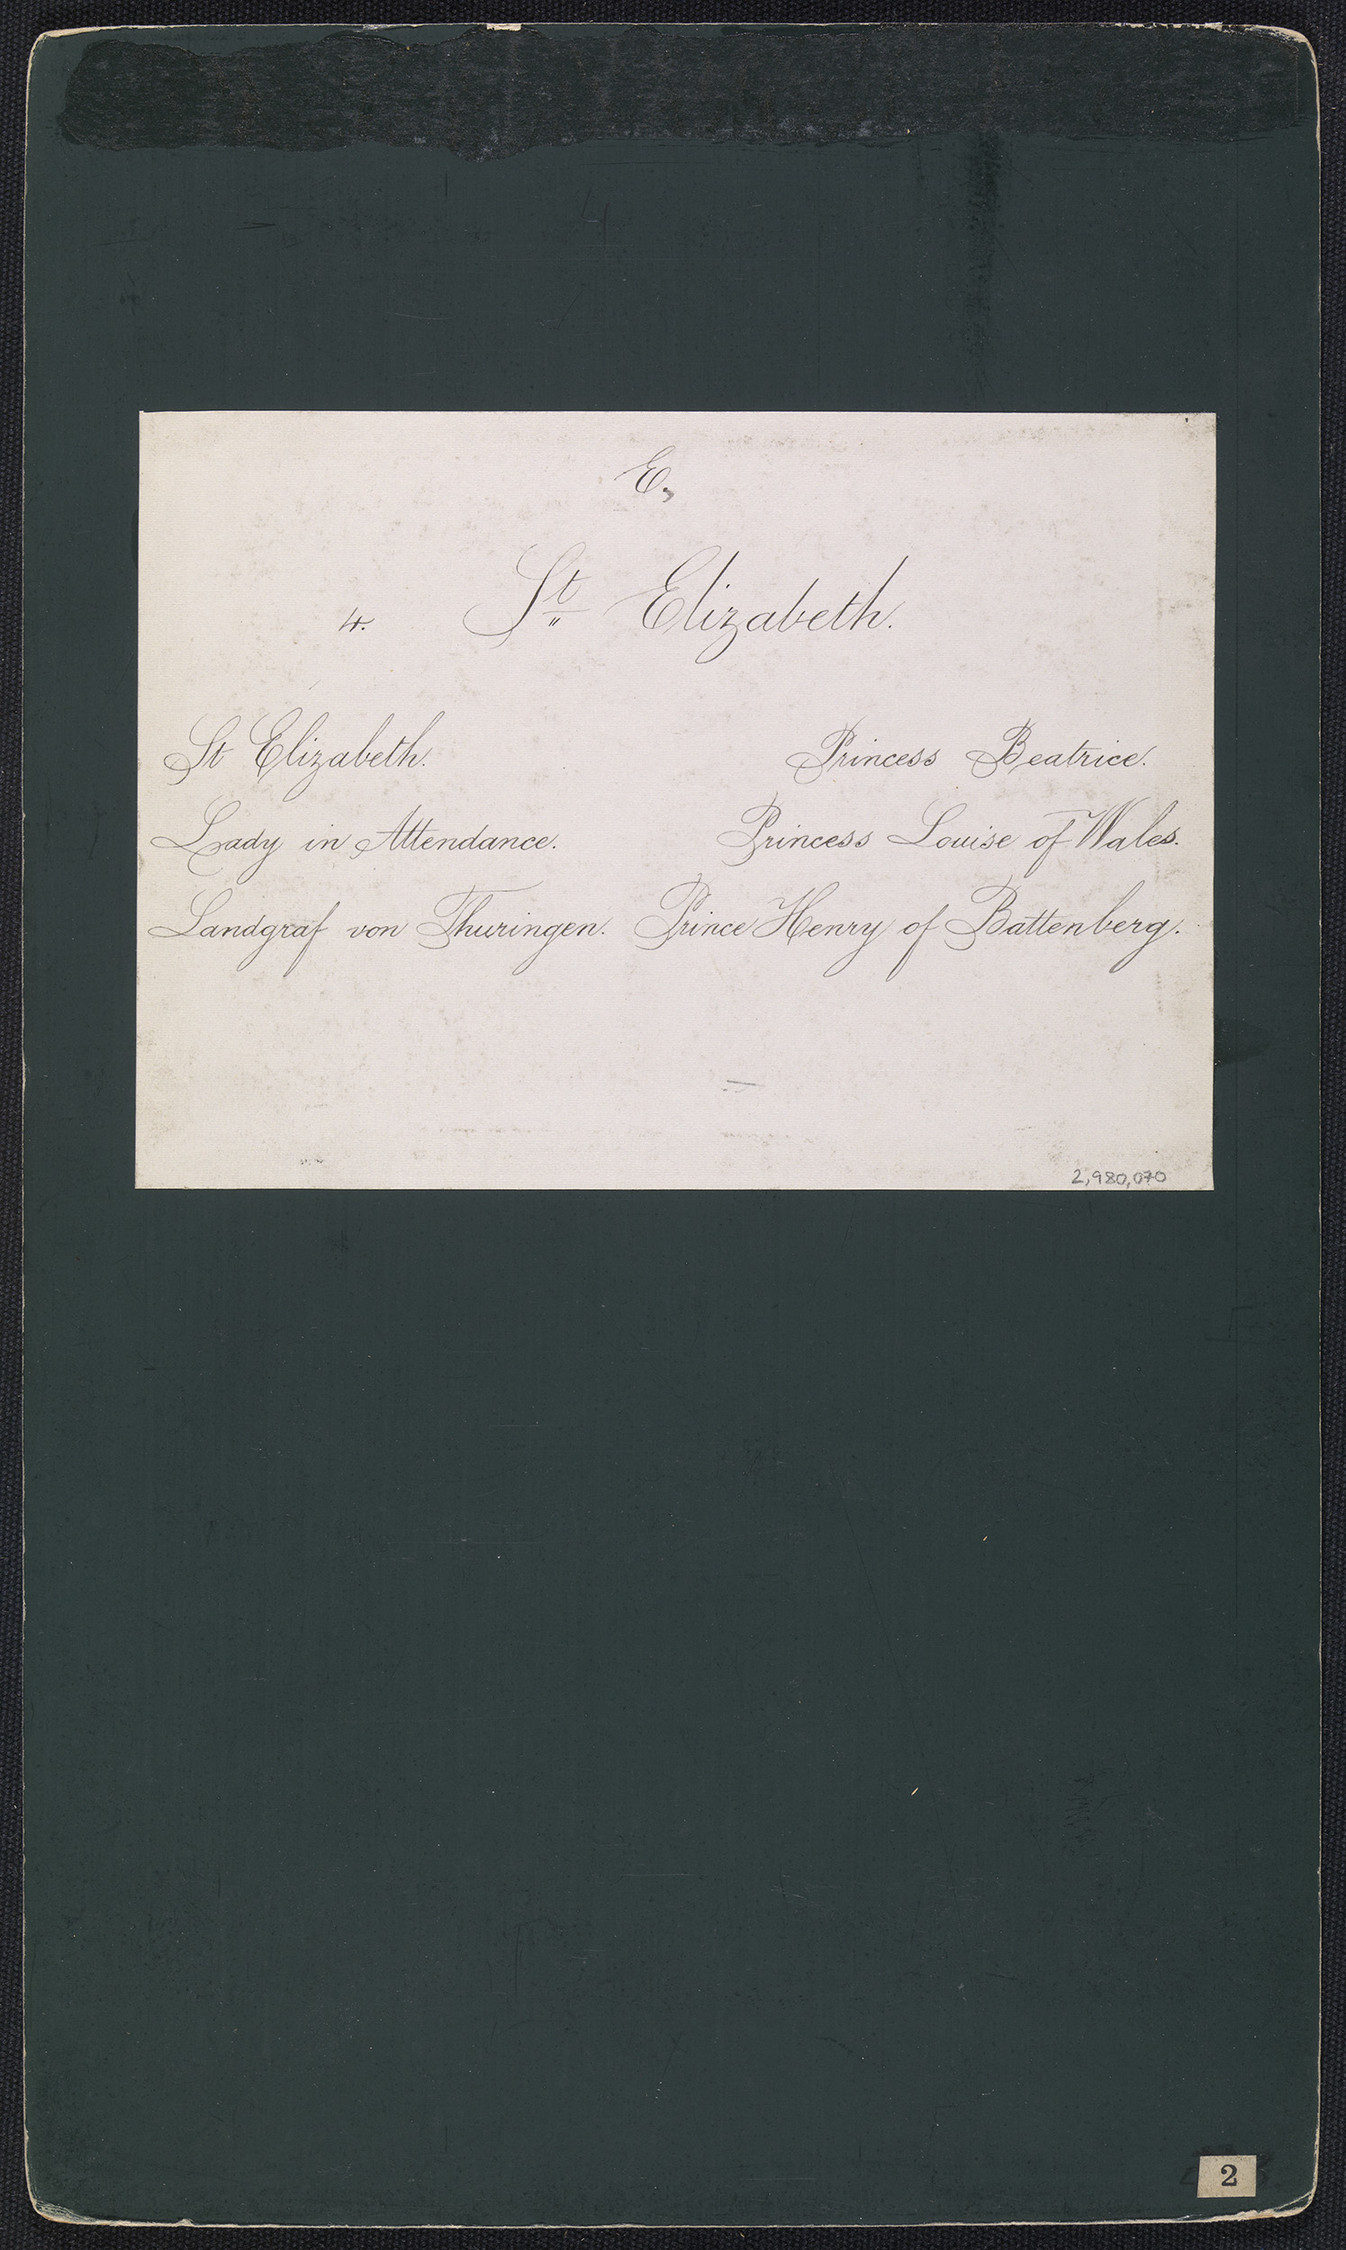 E,
4. St Elizabeth.
St Elizabeth. Princess Beatrice.
Lady in Attendance. Princess Louise of Wales.
Landgraf von Thuringen. Prince Henry of Battenberg.
2,980,070
2